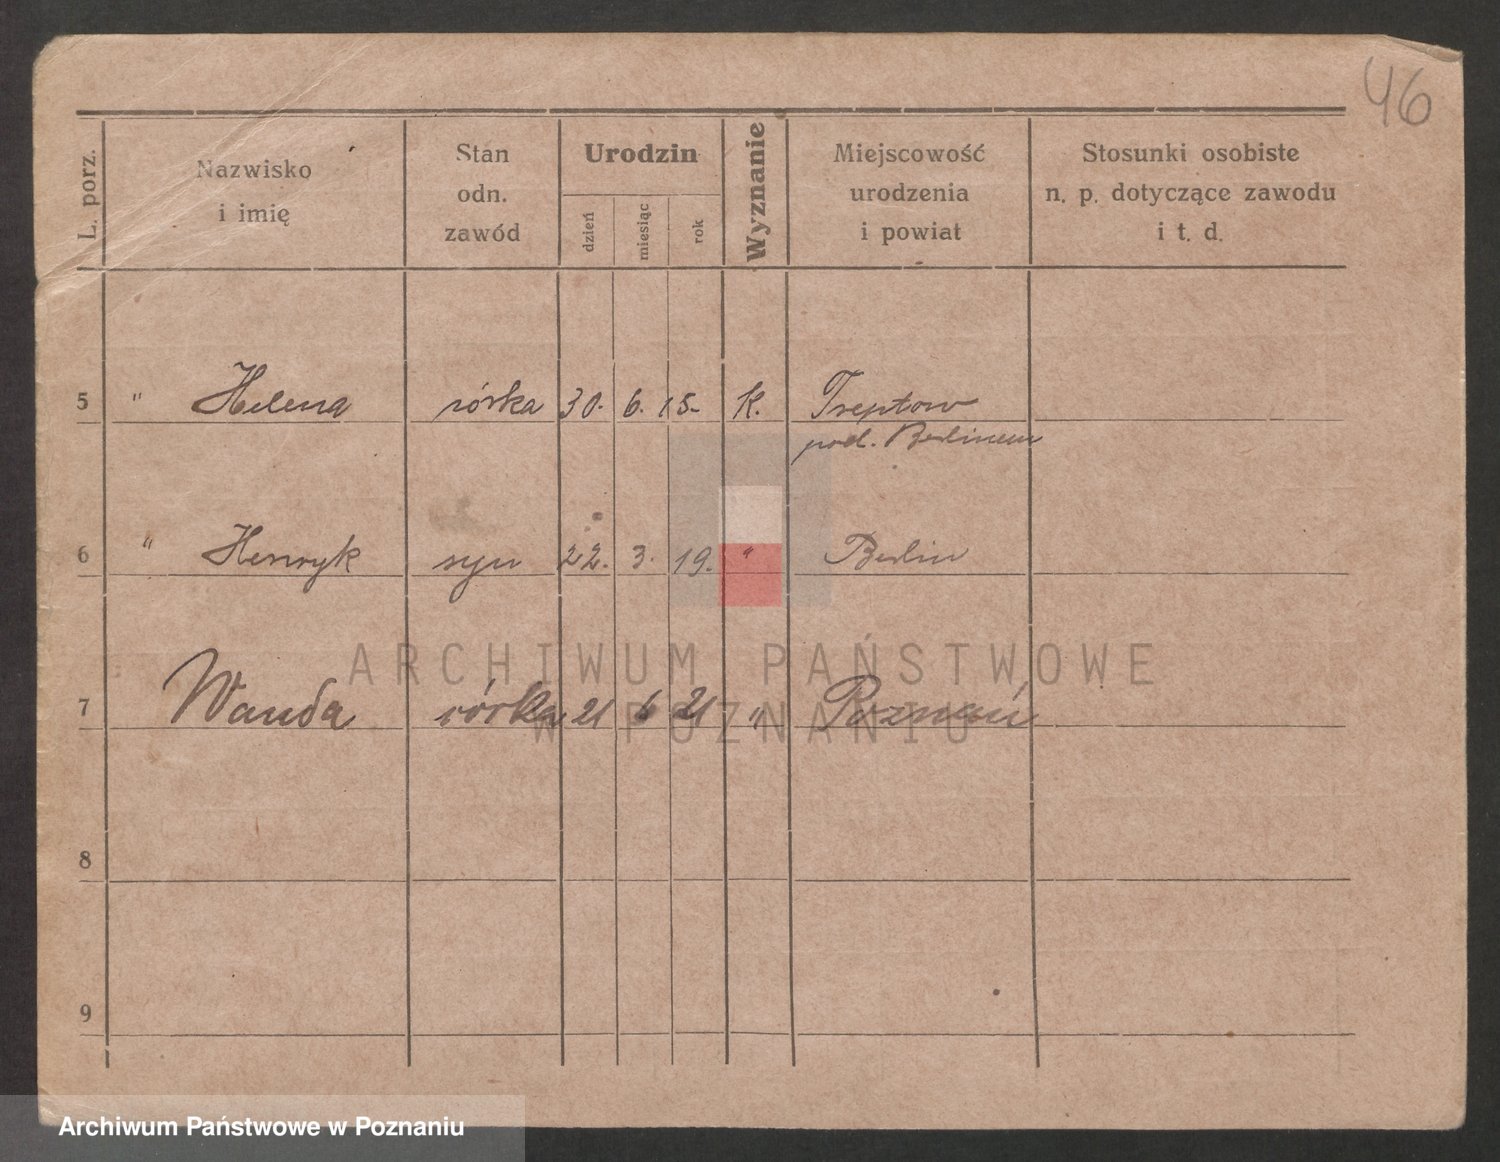 46
L. porz.
Nazwisko
i imię
Stan
odn.
zawód
Urodzin
dzień
miesiąc
rok
Wyznanie
Miejscowość
urodzenia
i powiat
Stosunki osobiste
n. p. dotyczące zawodu
i t. d.
5 " Helena córka 30. 6. 15. K. Treptow
pod. Berlinem
6 " Henryk syn 22. 3. 19. " Berlin
ARCHIWUM PAŃSTWOWE
7 Wanda córka 21 6 21 " Poznań
W POZNANIU
8
9
Archiwum Państwowe w Poznaniu